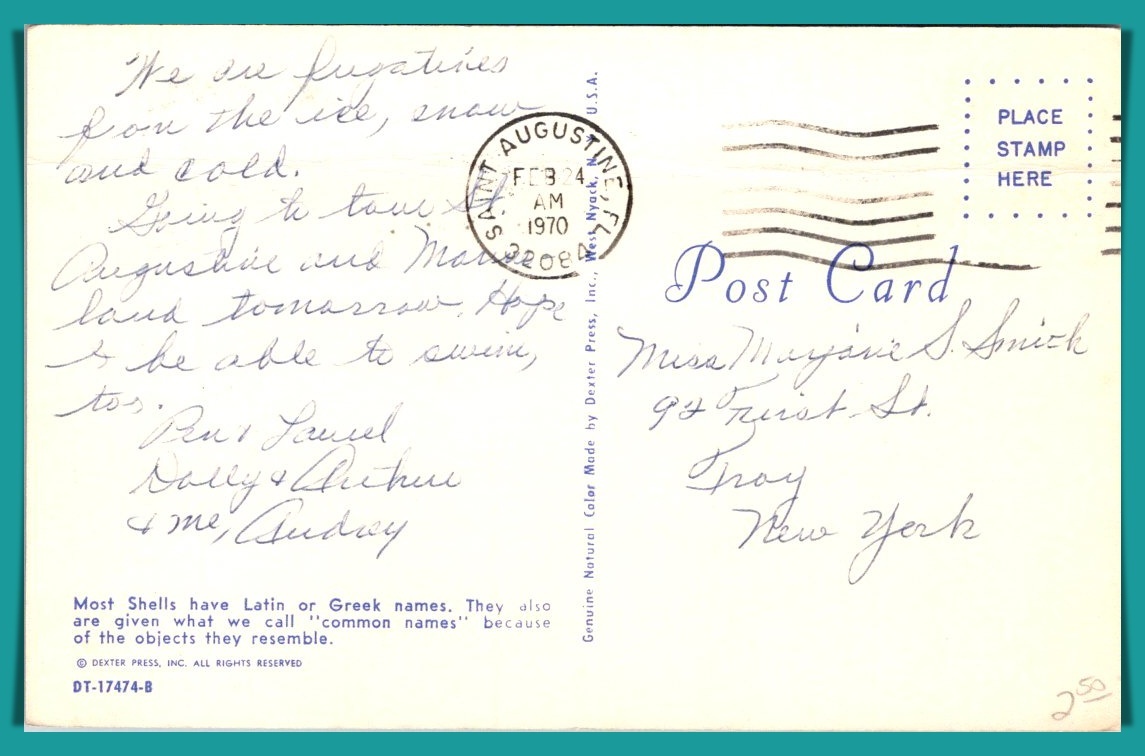 We are fugatives
from the ice, snow
and cold.
Going to tour St.
Augustine and Marine
land tomorrow. Hope
to be able to swim,
too.
Ben & Laurel
Dolly & Arthur
& me, Audrey
Most Shells have Latin or Greek names. They also
are given what we call "common names" because
of the objects they resemble.
© DEXTER PRESS, INC. ALL RIGHTS RESERVED
DT-17474-B
SAINT AUGUSTINE, FL
FEB 24
AM
1970
32084
Genuine Natural Color Made by Dexter Press, Inc., West Nyack, N. U.S.A.
PLACE
STAMP
HERE
Post Card
Miss Marjorie S. Smith
92 First St.
Troy
New York
2 50